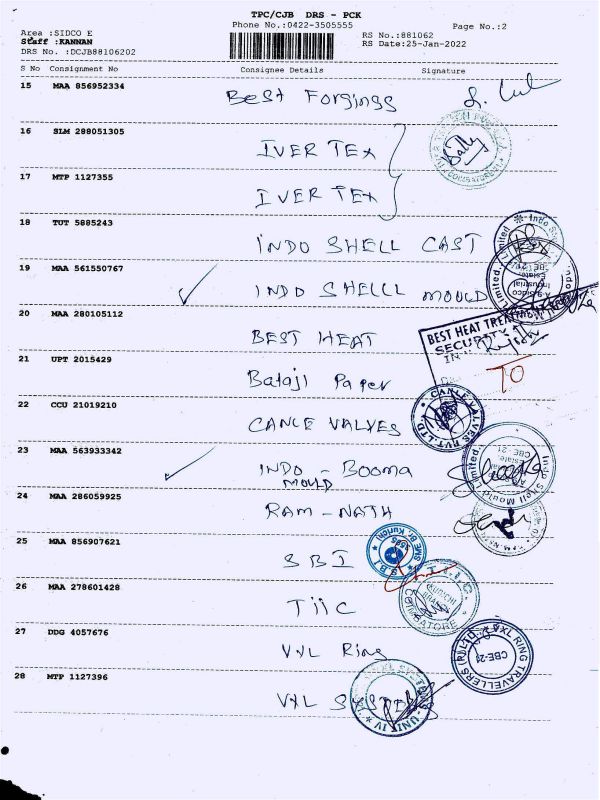 TPC/CJB DRS - PCK
Phone No.:0422-3505555
Page No.:2
Area :SIDCO E
RS No.:881062
Staff :KANNAN
RS Date:25-Jan-2022
DRS No. :DCJB88106202
S No Consignment No Consignee Details Signature
15 MAA 856952334 Best Forgings
16 SLM 288051305 IVER TEX
17 MTP 1127355 IVER TEX
18 TUT 5885243 INDO SHELL CAST
19 MAA 561550767 INDO SHELLL MOULD
20 MAA 280105112 BEST HEAT
BEST HEAT
SECURITY
21 UPT 2015429 Balaji Paper
TO
22 CCU 21019210 CANCE VALVES
23 MAA 563933342 INDO - BOOMA
MOULD
Indo Shell Mould Limited
CBE-21
24 MAA 286059925 RAM - NATH
25 MAA 856907621 SBI
26 MAA 278601428 TIIC
27 DDG 4057676 VXL Ring
VXL RING TRAVELLERS (P) LTD
CBE-21
28 MTP 1127396 VXL SYSTEMS
UNIT IV